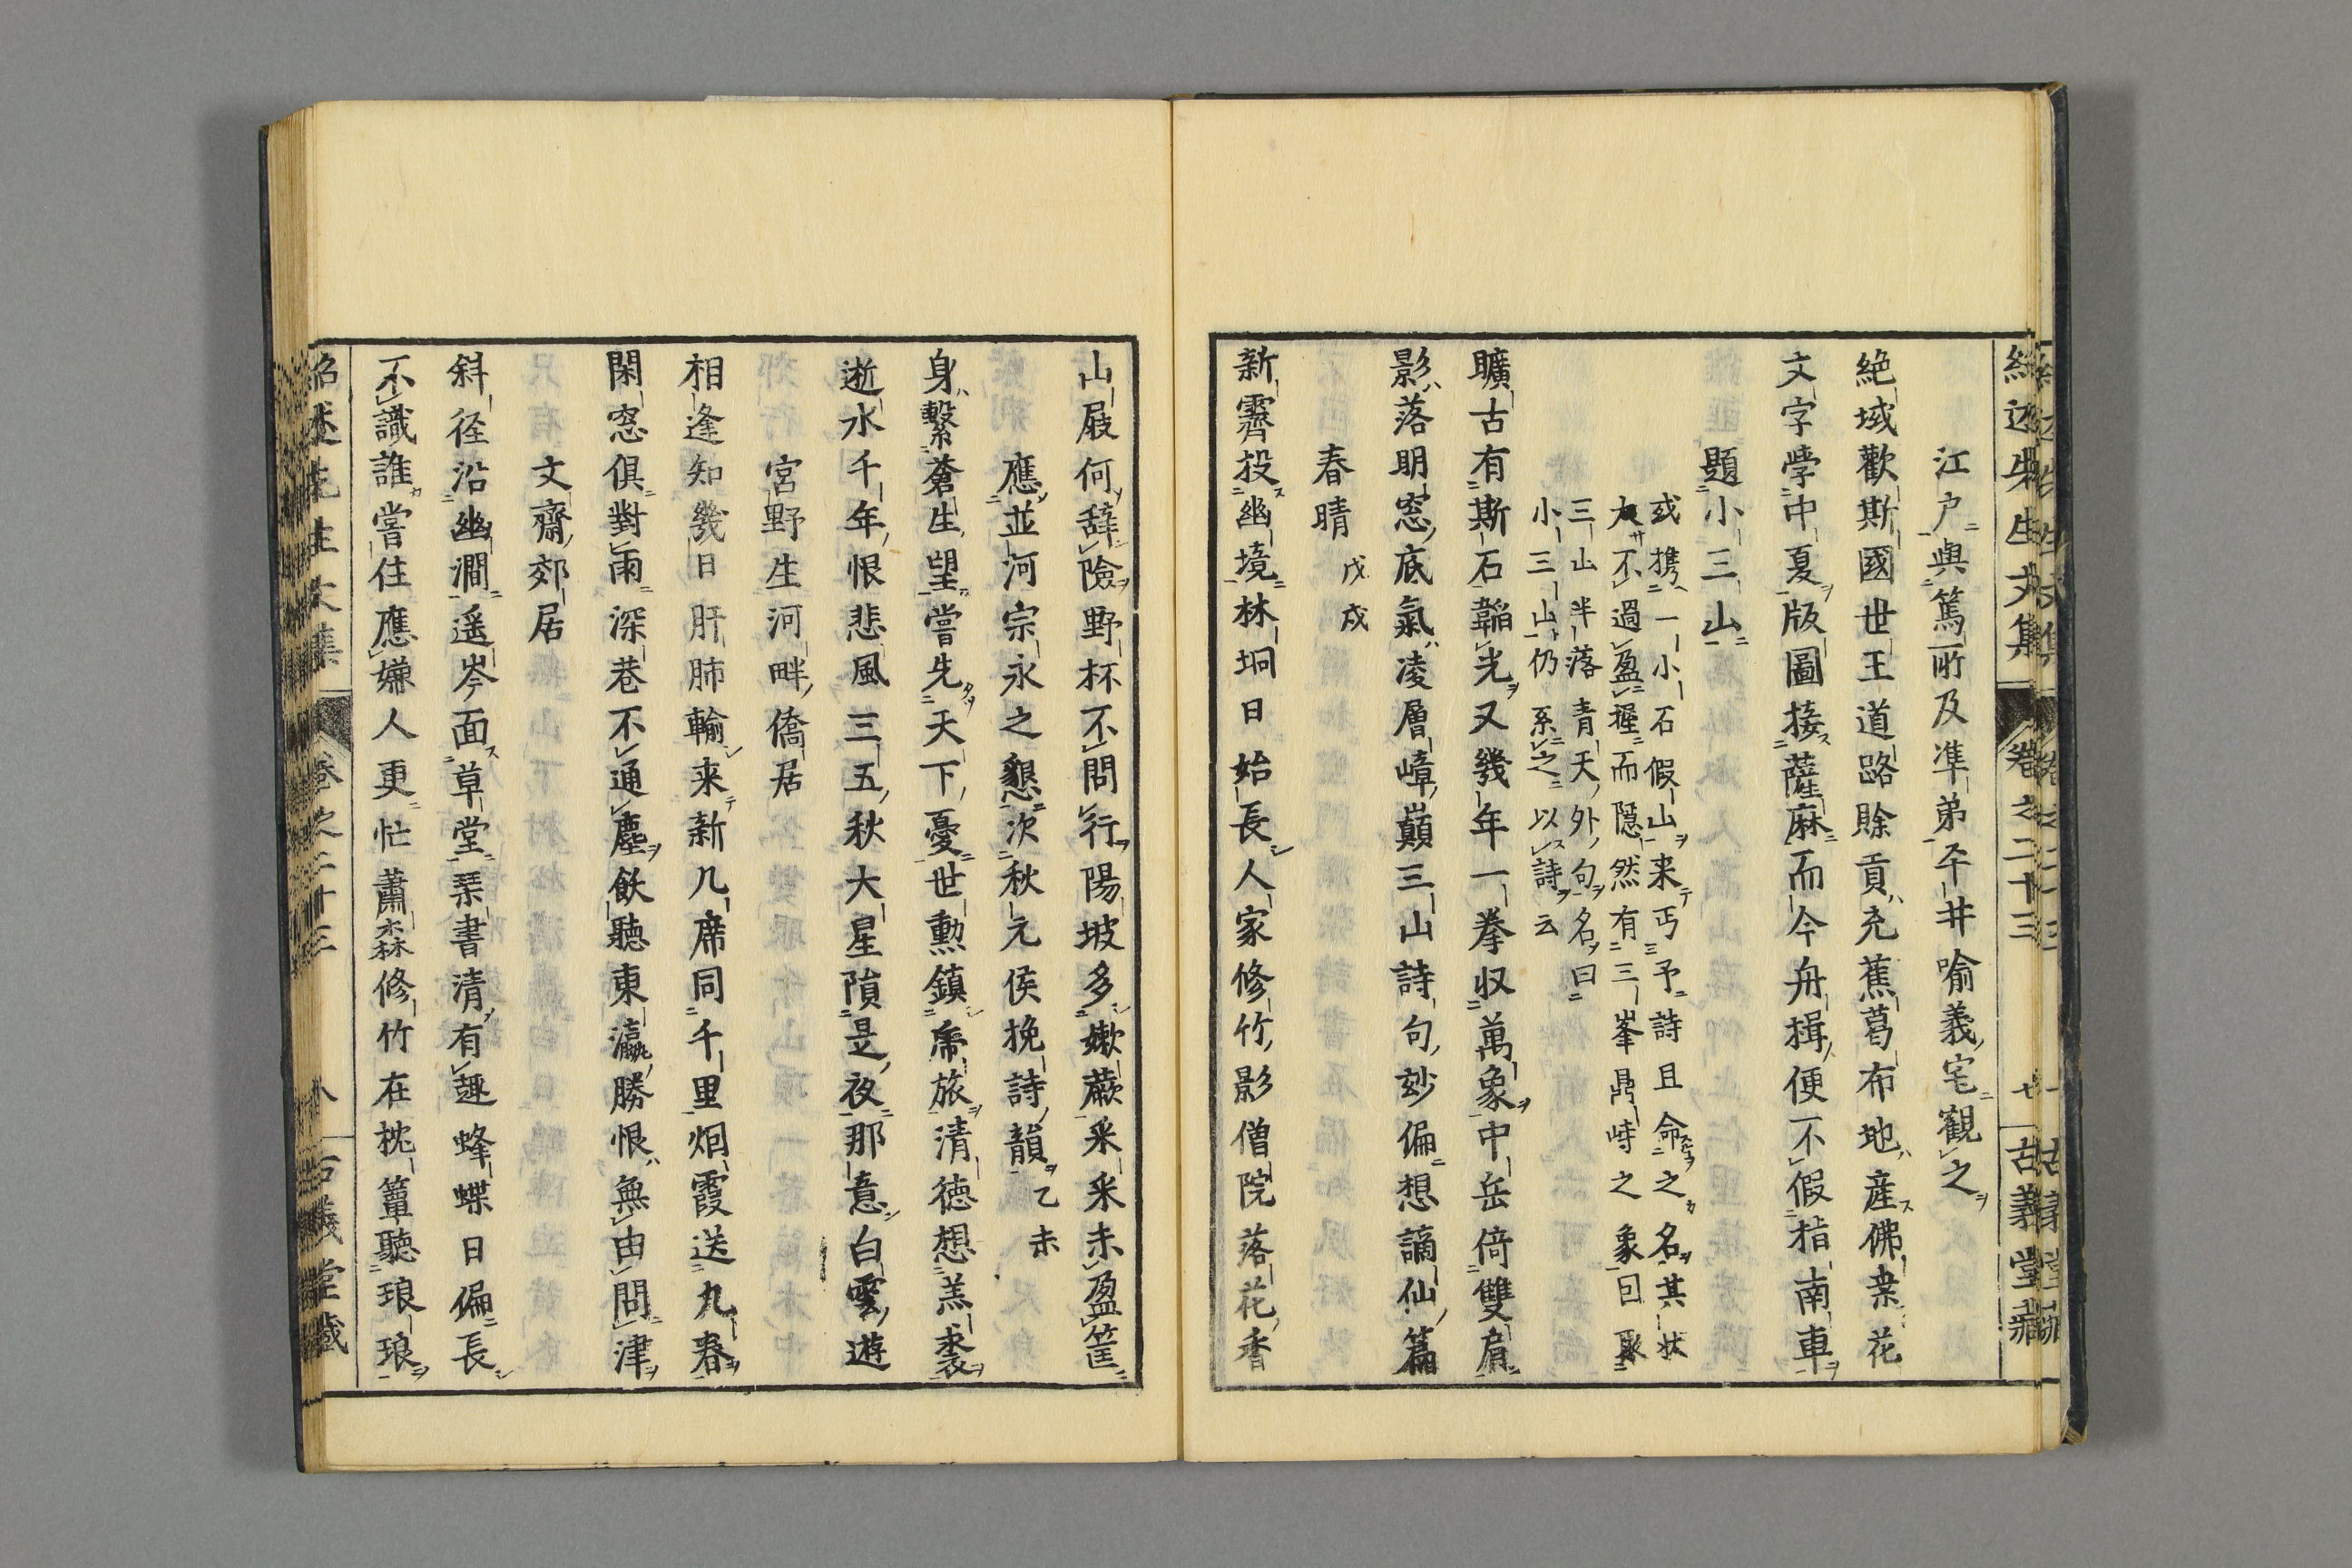 紹述先生文集 卷之二十三 七 古義堂藏
江户與篤所及準弟平井喻義宅觀之
絶域歡斯國世王道路賖貢充蕉葛布地産佛桒花
文字學中夏版圖接薩麻而今舟揖便不假指南車
題小三山
或携一小石假山来丐予詩且命之名其状
大不過盈握而隠然有三峯鼎峙之象曰取
三山半落青天外句名曰
小三山仍系之以詩云
曠古有斯石韜光又幾年一拳収萬象中岳倚雙肩
影落明窓底氣凌層嶂巔三山詩句妙偏想謫仙篇
春晴 戊戍
新霽投幽境林坰日始長人家修竹影僧院落花香
山屐何辞險野杯不問行陽坡多嫰蕨采采未盈筐
應並河宗永之懇次秋元侯挽詩韻 乙未
身繫蒼生望嘗先天下憂世勲鎮帟旅清徳想羔裘
逝水千年恨悲風三五秋大星隕是夜那意白雲遊
宮野生河畔僑居
相逢知幾日肝肺輸来新几席同千里烟霞送九春
閑窓俱對雨深巷不通塵飲聽東瀛勝恨無由問津
文齋郊居
斜径沿幽澗遥岑面草堂琹書清有趣蜂蝶日偏長
不識誰嘗住應嫌人更忙蕭森修竹在枕簟聽琅琅
紹述先生文集 卷之二十三 八 古義堂藏